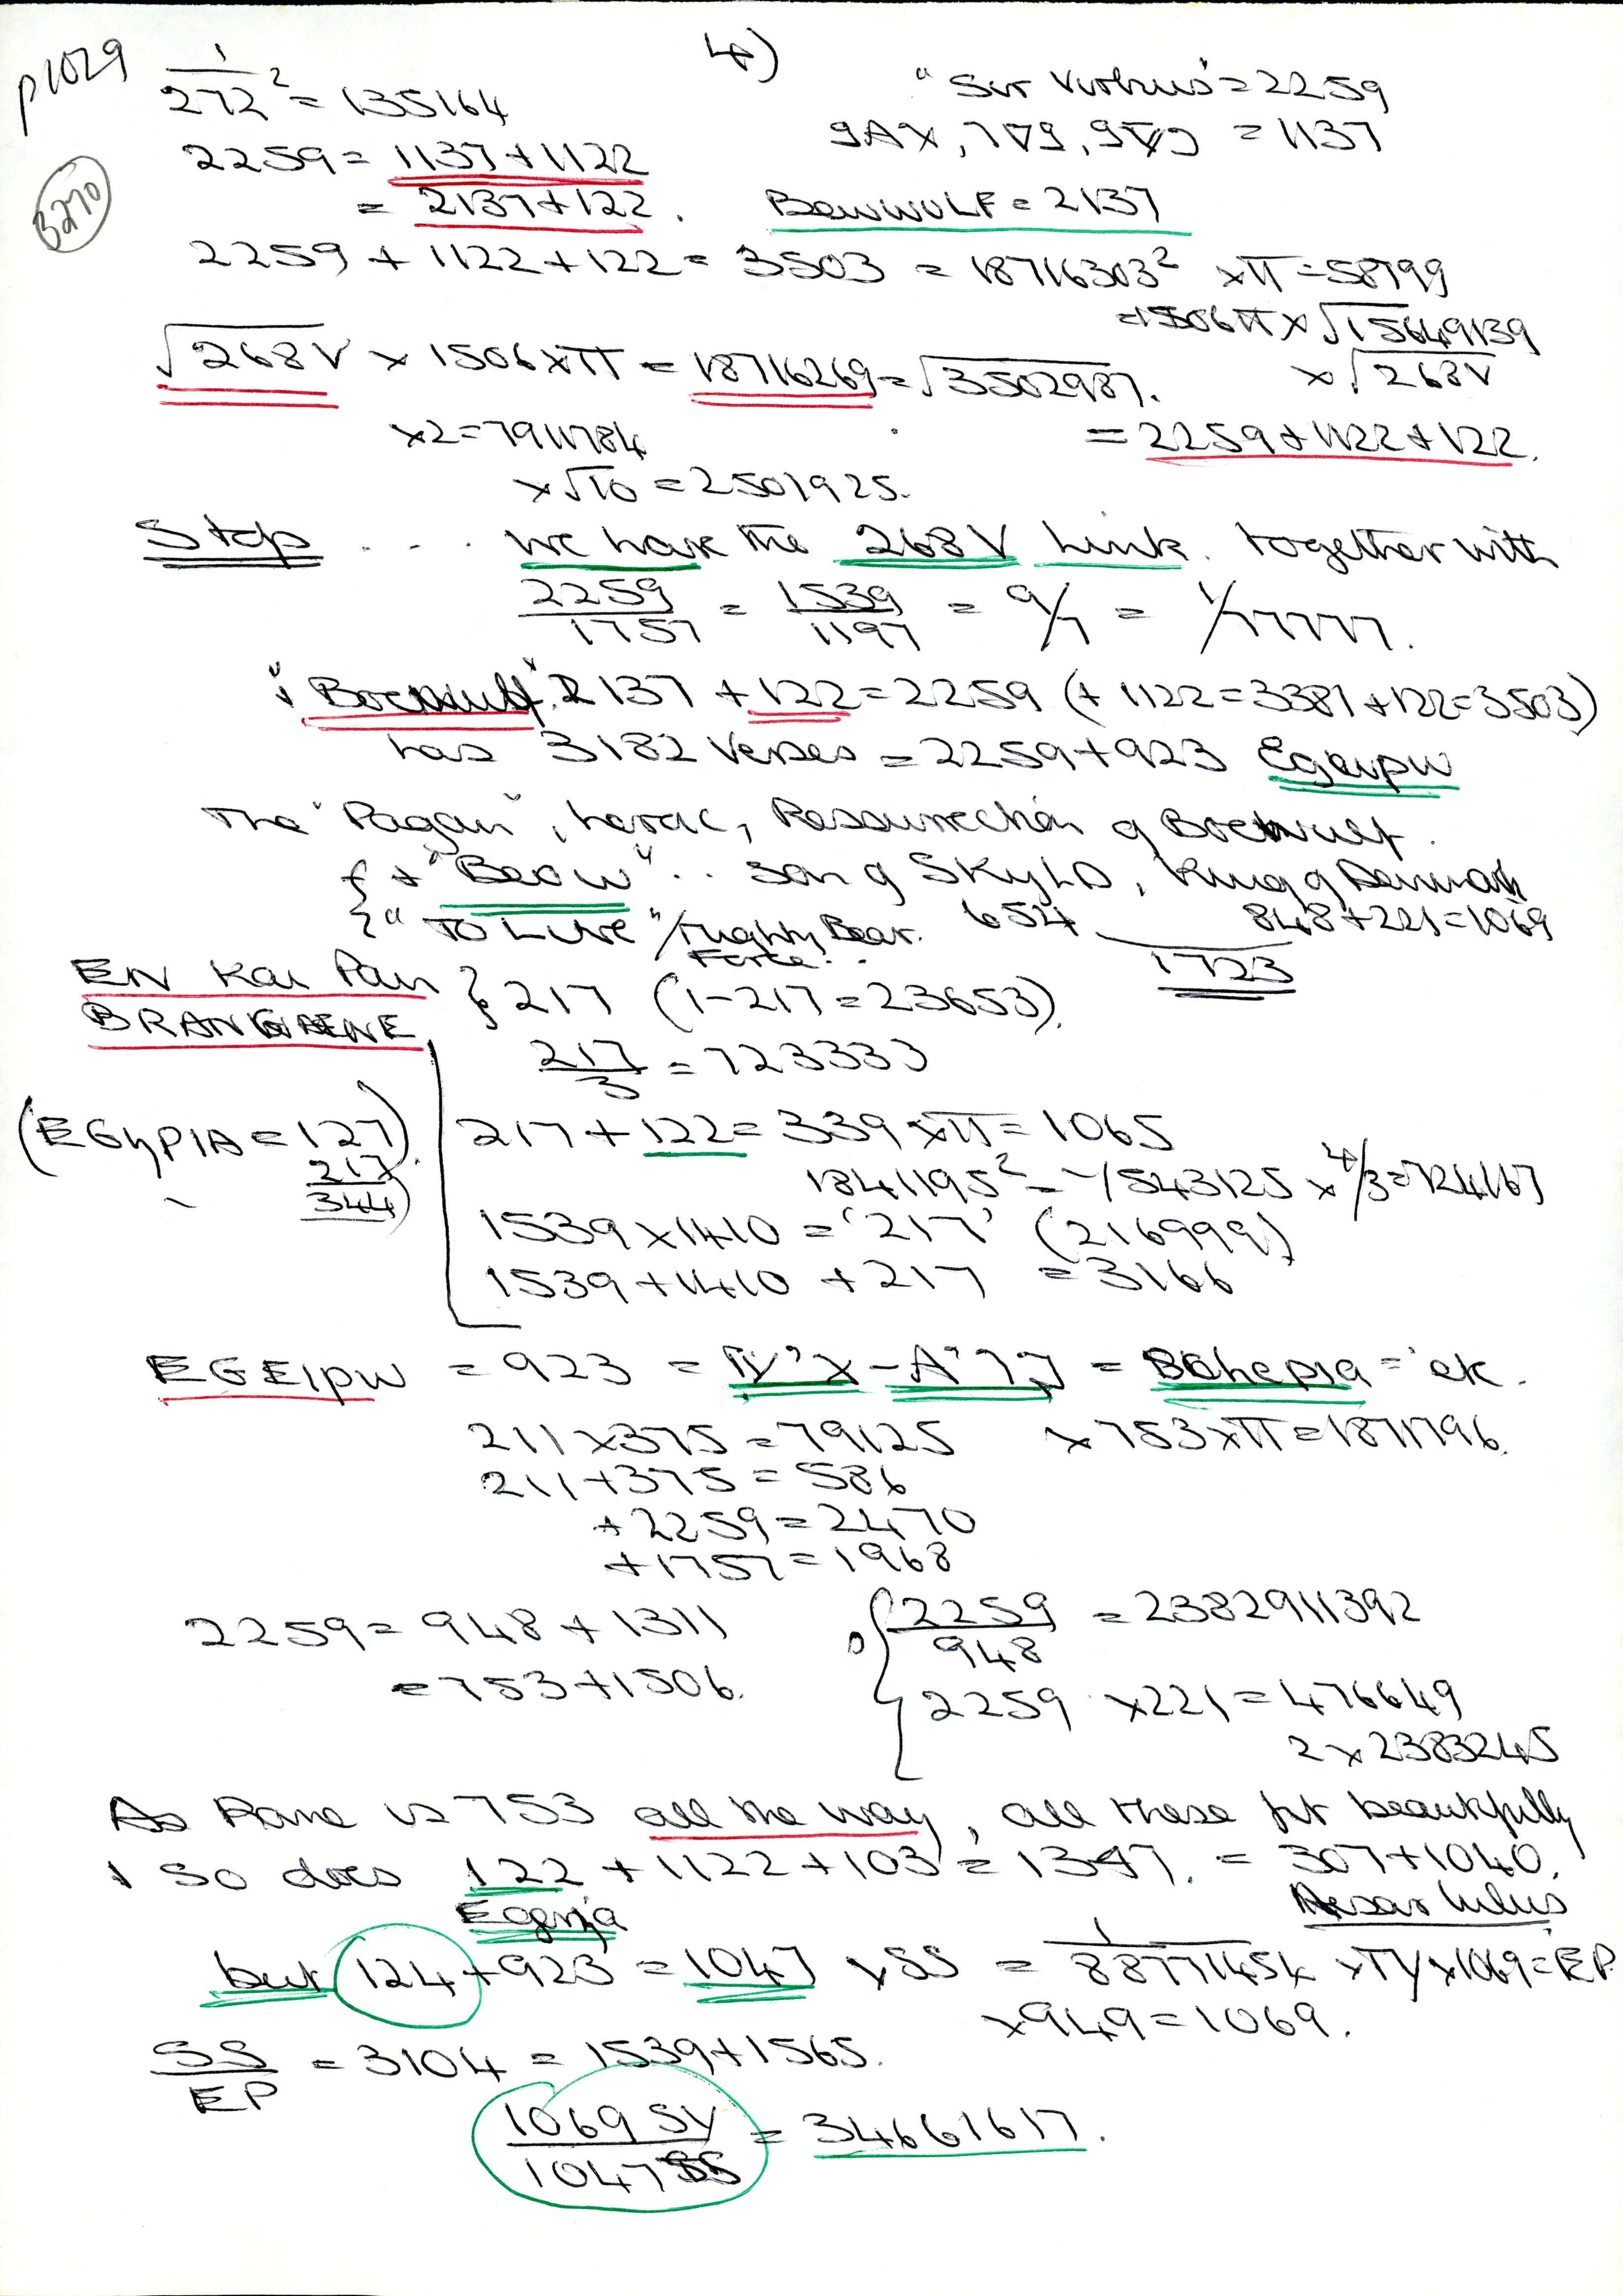 p1029
4)
1/272² = 135164
"Sir Virtuus" = 2259
= 1137
3270
2259 = 1137 + 1122
= 2137 + 122. BEWWULF = 2137
2259 + 1122 + 122 = 3503 = 18716303² × π = 58799
= 1506π × √15649139
√268V × 1506 × π = 18716269 = √3502987.
× √268V
×2 = 7911784
= 2259 + 1122 + 122.
× √10 = 2501925.
Stop ... we have the 268V Link. together with
2259/1757 = 1539/1197 = 9/7 = 1/77777.
"Boewulf" 2137 + 122 = 2259 (+ 1122 = 3381 + 122 = 3503)
has 3182 Verses = 2259 + 923 Egeipw
The "Pagan", heroic, Resurrection of Boewulf.
{ + "Beow" .. son of SKyLD, King of Denmark
"TO LIVE" / mighty Bear. 654 848 + 221 = 1069
Force. 1723
EN Kai Pan
BRANGAENE
} 217 (1-217 = 23653).
217/3 = 723333
(EGYPIA = 127)
217
344
217 + 122 = 339 × π = 1065
1841195² = 1543125 × 4/3 = 124167
1539 × 1410 = '217' (216999)
1539 + 1410 + 217 = 3166
EGEIPW = 923 = = = ek.
211 × 375 = 79125 × 753 × π = 1871796.
211 + 375 = 586
+ 2259 = 2470
+ 1757 = 1968
2259 = 948 + 1311
= 753 + 1506.
2259/948 = 2382911392
2259 × 221 = 476649
2 × 2383245
As Rome is 753 all the way, all these fit beautifully
& so does 122 + 1122 + 103 = 1347. = 307 + 1040.
Egeria
but 124 + 923 = 1047 × SS = 1/88771454 × TY × 1069 = EP.
× 949 = 1069.
SS/EP = 3104 = 1539 + 1565.
1069 SY/1047 SS = 34661617.